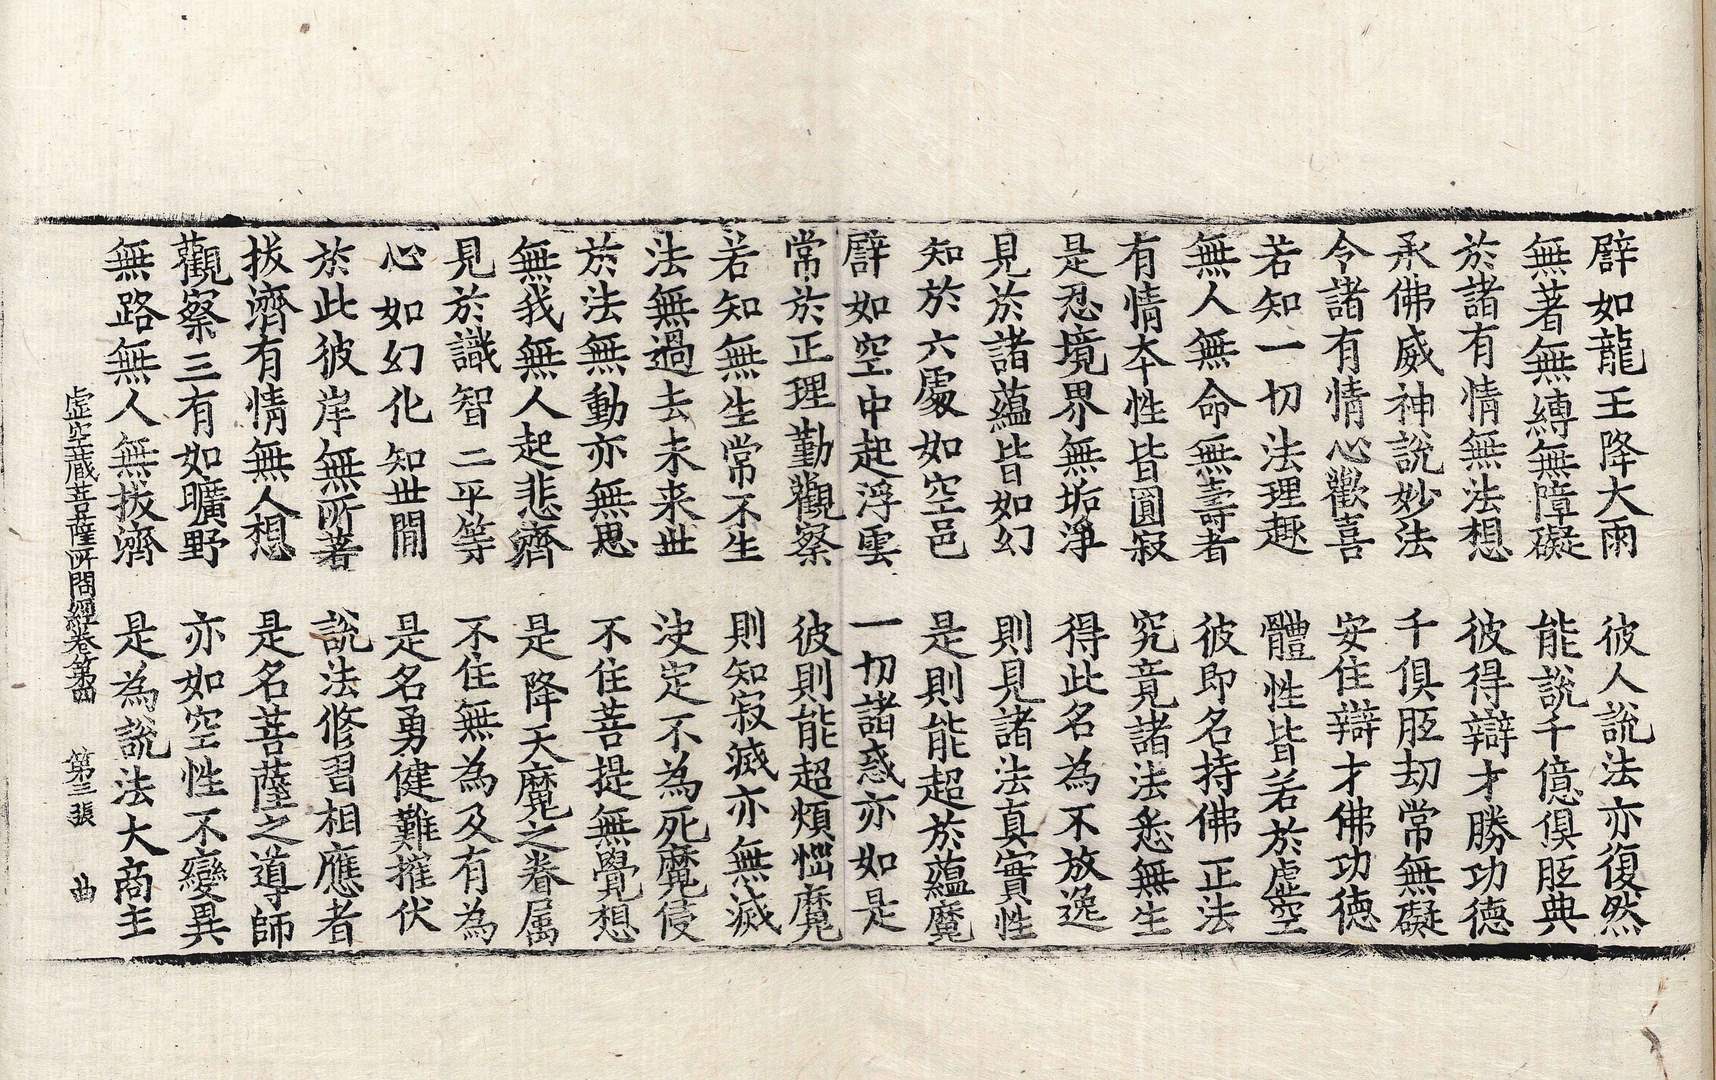 譬如龍王降大雨　彼人說法亦復然
無著無縛無障礙　能說千億俱胝典
於諸有情無法想　彼得辯才勝功德
承佛威神說妙法　千俱胝劫常無礙
令諸有情心歡喜　安住辯才佛功德
若知一切法理趣　體性皆若於虛空
無人無命無壽者　彼即名持佛正法
有情本性皆圓寂　究竟諸法悉無生
是忍境界無垢淨　得此名為不放逸
見於諸蘊皆如幻　則見諸法真實性
知於六處如空邑　是則能超於蘊魔
譬如空中起浮雲　一切諸惑亦如是
常於正理勤觀察　彼則能超煩惱魔
若知無生常不生　則知寂滅亦無滅
法無過去未来世　決定不為死魔侵
於法無動亦無思　不住菩提無覺想
無我無人起悲濟　是降天魔之眷属
見於識智二平等　不住無為及有為
心如幻化知世間　是名勇健難摧伏
於此彼岸無所著　說法修習相應者
拔濟有情無人想　是名菩薩之導師
觀察三有如曠野　亦如空性不變異
無路無人無拔濟　是為說法大商主
虛空藏菩薩所問經卷第四　第三張　曲